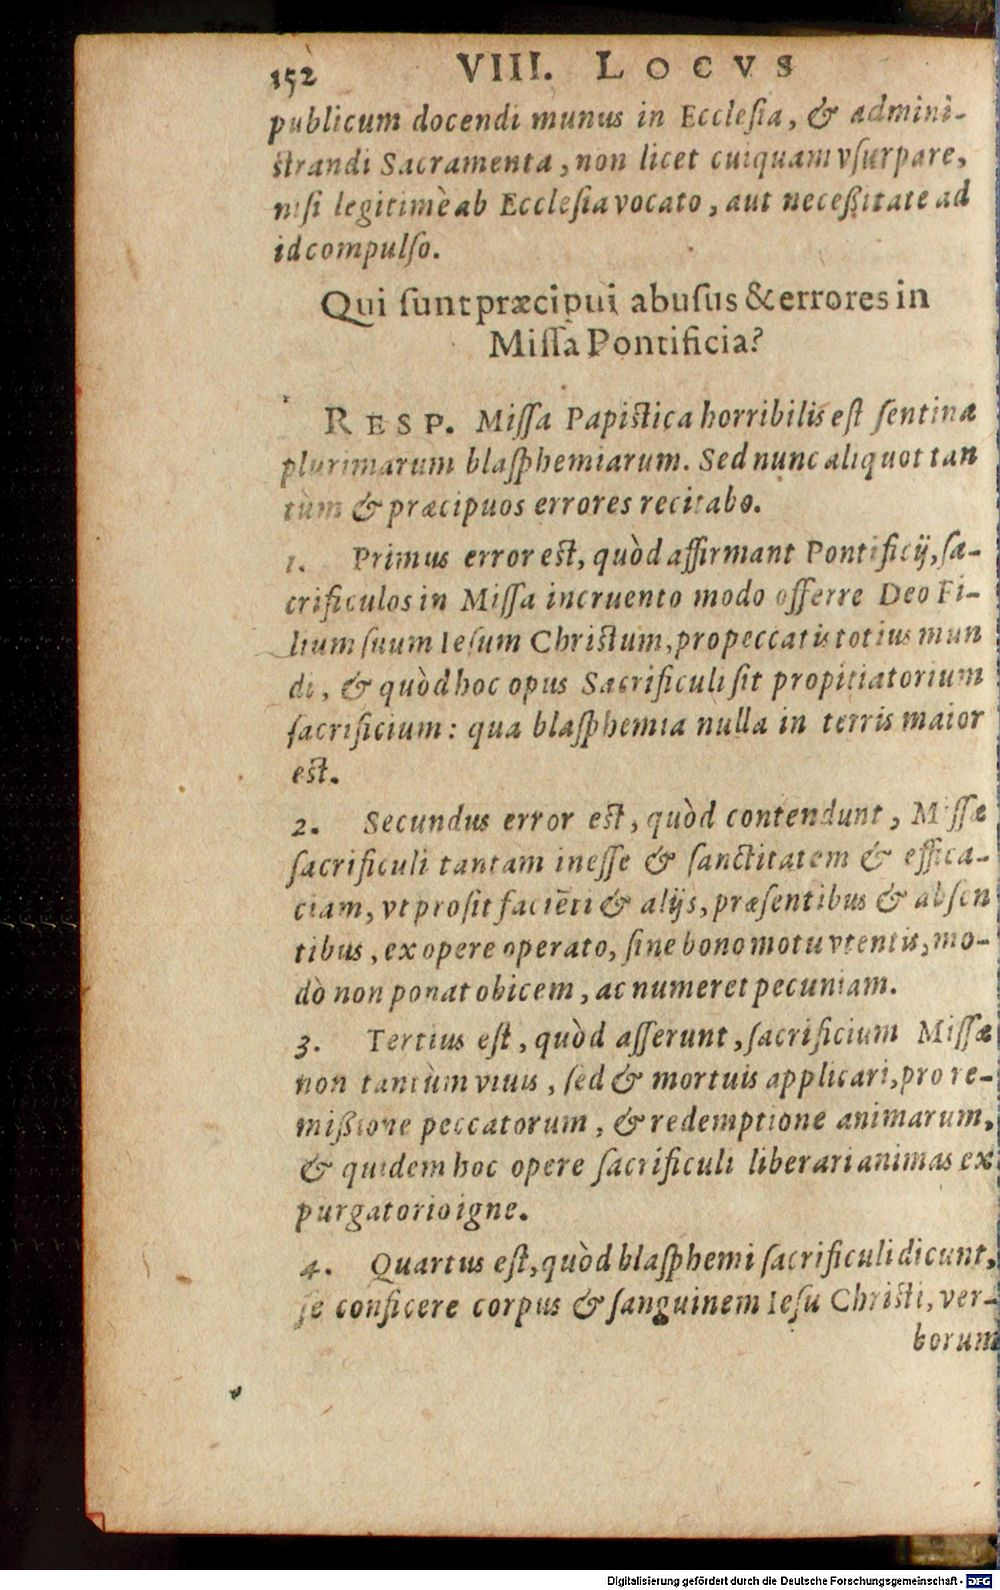 152 VIII. LOCVS
publicum docendi munus in Ecclesia, & admini-
strandi Sacramenta, non licet cuiquam vsurpare,
nisi legitimè ab Ecclesia vocato, aut necessitate ad
id compulso.
Qui sunt præcipui abusus & errores in
Missa Pontificia?
RESP. Missa Papistica horribilis est sentina
plurimarum blasphemiarum. Sed nunc aliquot tan
tùm & præcipuos errores recitabo.
1. Primus error est, quòd affirmant Pontificij, sa-
crificulos in Missa incruento modo offerre Deo Fi-
lium suum Iesum Christum, pro peccatis totius mun
di, & quòd hoc opus Sacrificuli sit propitiatorium
sacrificium: qua blasphemia nulla in terris maior
est.
2. Secundus error est, quòd contendunt, Missæ
sacrificuli tantam inesse & sanctitatem & effica-
ciam, vt prosit faciēti & alijs, præsentibus & absen
tibus, ex opere operato, sine bono motu vtentis, mo-
dò non ponat obicem, ac numeret pecuniam.
3. Tertius est, quòd asserunt, sacrificium Missæ
non tantùm viuis, sed & mortuis applicari, pro re-
missione peccatorum, & redemptione animarum,
& quidem hoc opere sacrificuli liberari animas ex
purgatorio igne.
4. Quartus est, quòd blasphemi sacrificuli dicunt,
se conficere corpus & sanguinem Iesu Christi, ver-
borum
Digitalisierung gefördert durch die Deutsche Forschungsgemeinschaft - DFG